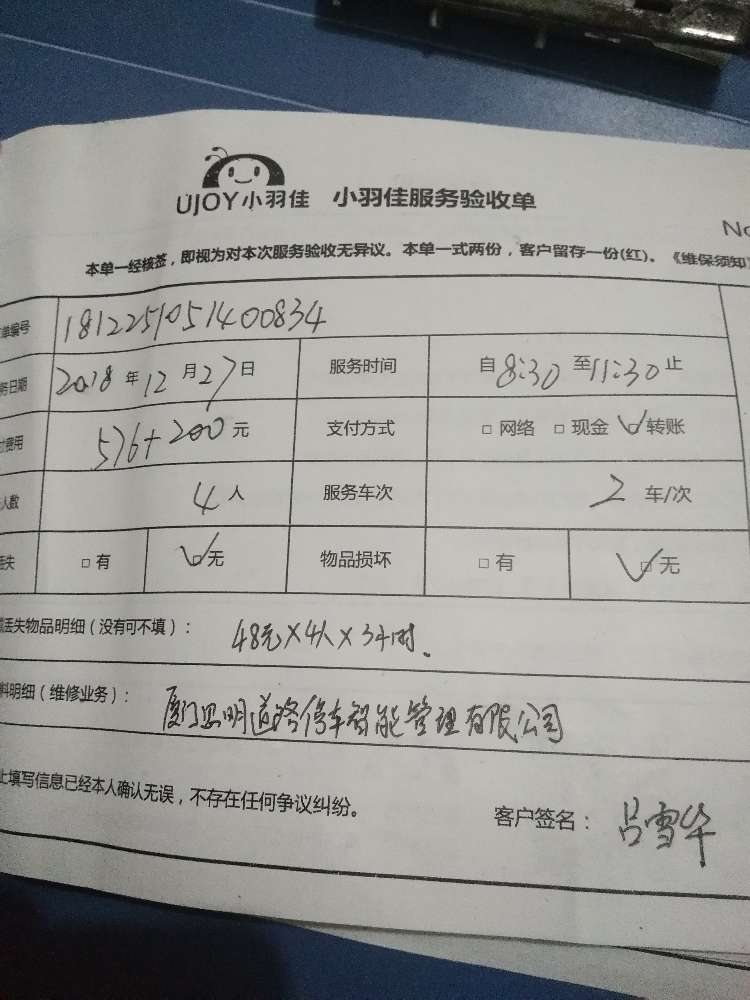 UJOY小羽佳 小羽佳服务验收单
No
本单一经核签，即视为对本次服务验收无异议。本单一式两份，客户留存一份(红)。《维保须知》
单编号 1812251051400834
务日期 2018年12月27日 服务时间 自8:30至11:30止
费用 576+200元 支付方式 □网络 □现金 ☑转账
人数 4人 服务车次 2车/次
失 □有 ☑无 物品损坏 □有 ☑无
丢失物品明细（没有可不填）： 48元×4人×3小时.
料明细（维修业务）： 厦门思明道路停车智能管理有限公司
上填写信息已经本人确认无误，不存在任何争议纠纷。
客户签名： 吕雪华